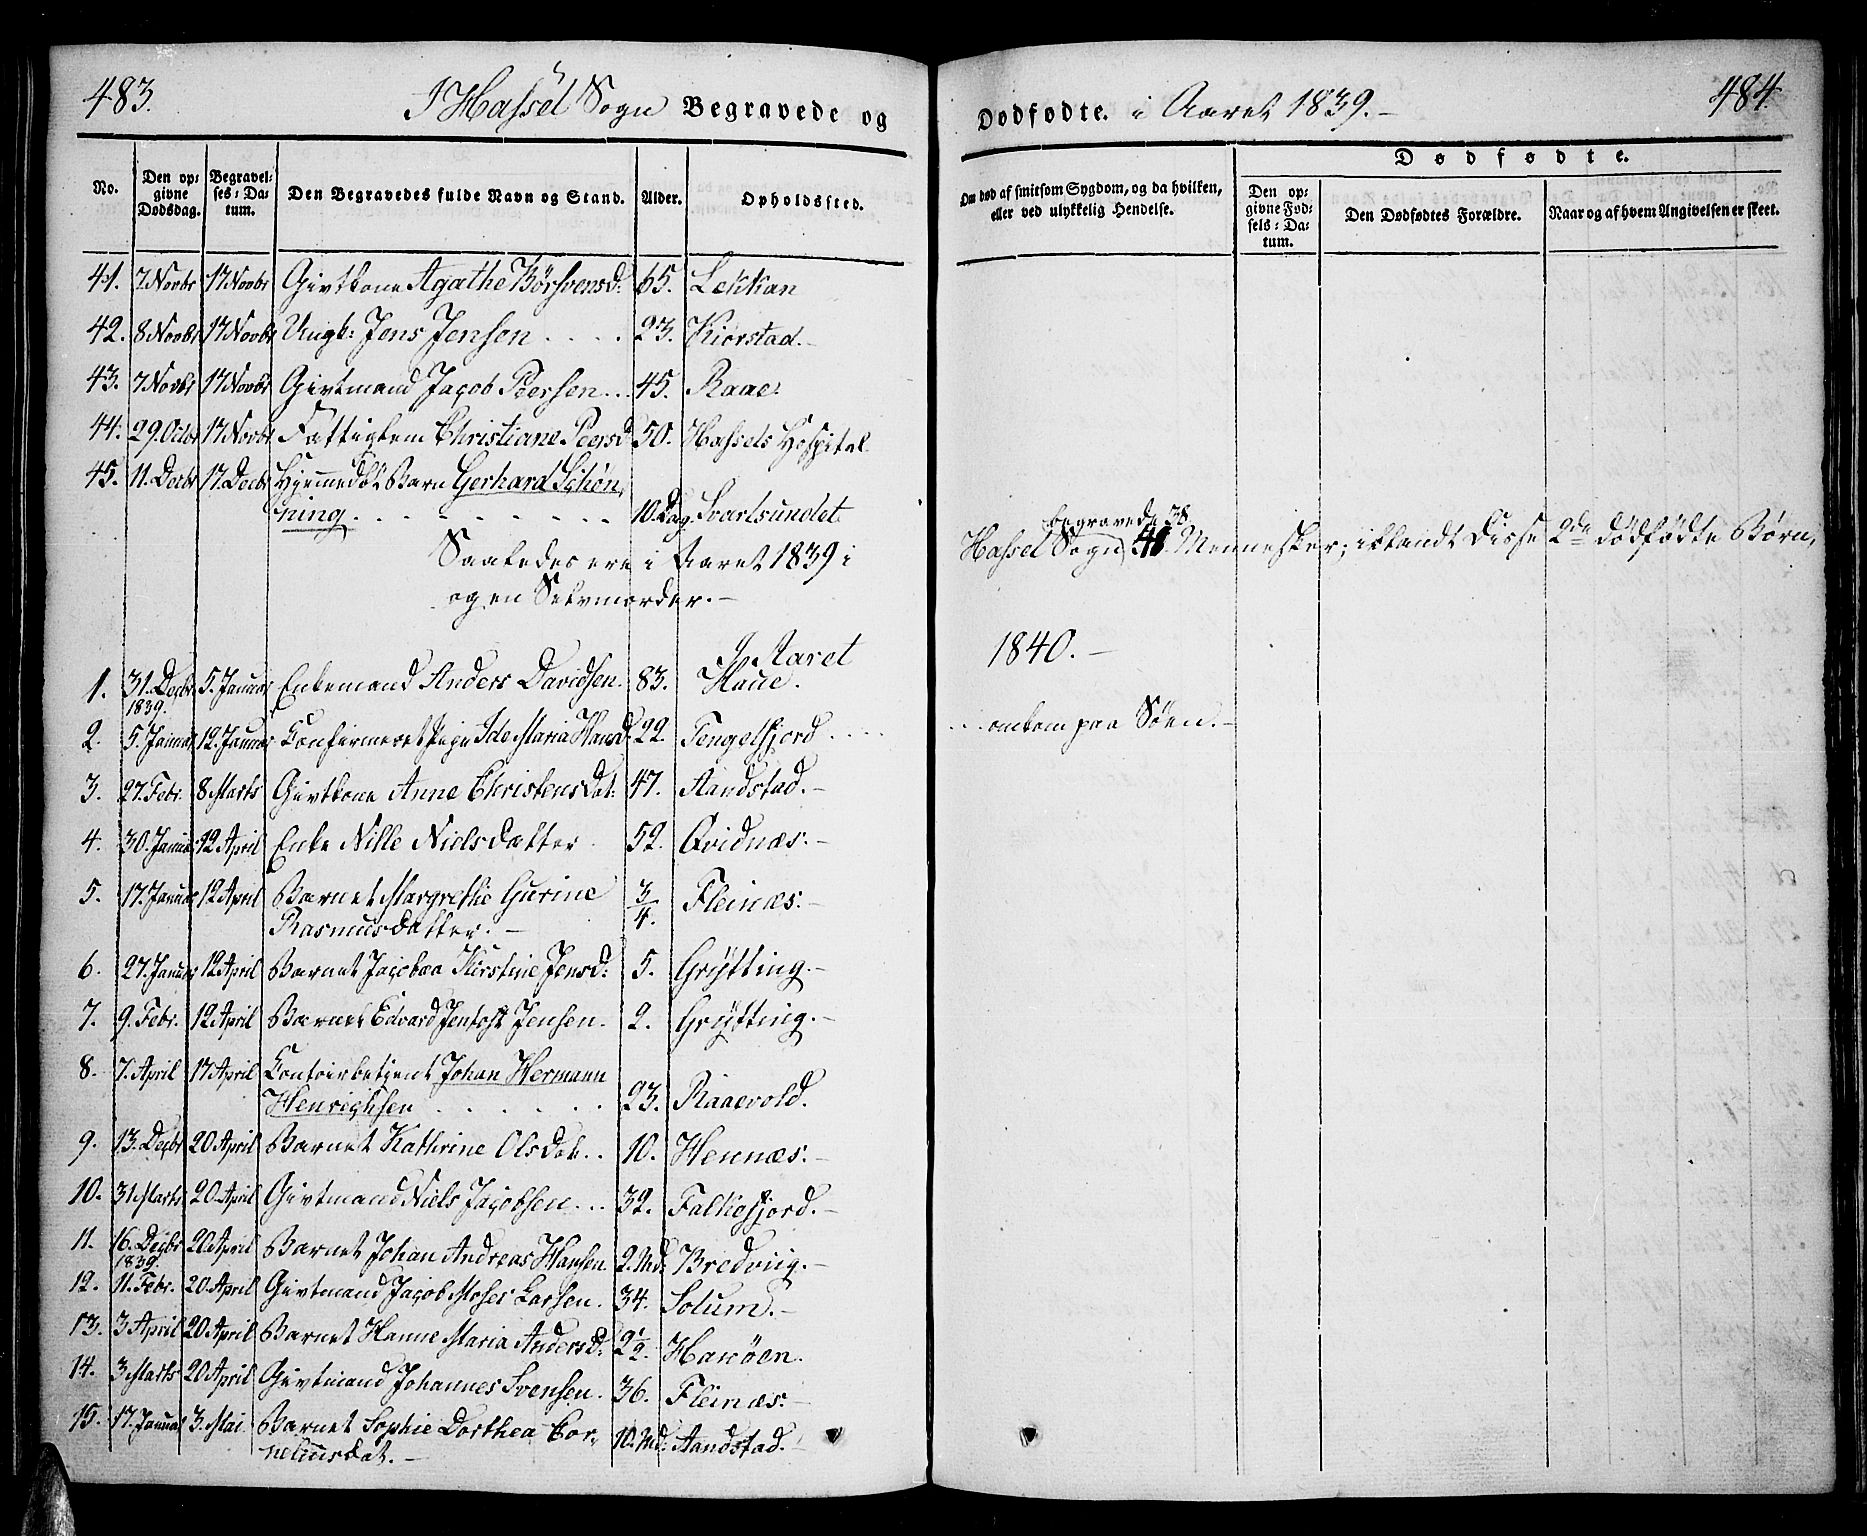 483.
I Hassel Sogn Begravede og
Dødfødte. i Aaret 1839.-
484.
No.
Den opgivne Dødsdag.
Begravelses-Datum.
Den Begravedes fulde Navn og Stand.
Alder.
Opholdssted.
Om død af smitsom Sygdom, og da hvilken, eller ved ulykkelig Hendelse.
Dødfødte.
Den opgivne Fødsels-Datum.
Den Dødfødtes Forældre.
Naar og af hvem Angivelsen er skeet.
41. 7 Novbr 17 Novbr Givtkone Agathe Børsvensd: 65. Lekkan
42. 8 Novbr 17 Novbr Ungk: Jens Jensen .... 23. Kiørstad.-
43. 7 Novbr 17 Novbr Givtmand Jacob Peersen... 45. Raae.
44. 29. Octbr 17 Novbr Fattiglem Christiane Peersd 50. Hassels Hospital
45. 11. Decbr 17. Decbr Hjemmedøbt Barn Gerhard Schøn,
ning . . . . . . . . 10. Dag. Svartsundet
Saaledes ere i Aaret 1839 i
begravede 38
Hassel Sogn Mennesker; iblandt Disse 2de dödfödte Börn,
og en Selvmorder.-
I Aaret 1840.-
1. 31. Decbr 1839. 5. Januar Enkemand Anders Davidsen. 83. Haue.
2. 5. Januar 12. Januar Confirmeret Pige Ide Maria Hansd 22. Tengelfjord .... ... omkom paa Søen.-
3. 27. Febr. 8 Marts Givtkone Anne Christensdat: 47. Aandstad.-
4. 30. Januar 12 April Enke Nille Nielsdatter. 52. Qvidnæs:-
5. 17. Januar 12 April Barnet Margrethe Gurine
Rasmusdatter.- 3/4. Fleinæs:-
6. 27. Januar 12 April Barnet Jacobea Kirstine Jensd: 5. Grÿtting.-
7. 9. Febr. 12 April Barnet Edvard Jentoft Jensen. 2. Grÿtting.-
8. 7. April 17 April Contoirbetjent Johan Hermann
Henrichsen . . . . . . 23. Raaevold.
9. 13. Decbr 20 April Barnet Kathrine Olsdat.. 10. Hennæs:-
10. 31 Marts 20. April Givtmand Niels Jacobsen... 32. Falkefjord.-
11. 16. Decbr 1839. 20 April Barnet Johan Andreas Hansen 2. Md: Bredviig.-
12. 11. Febr. 20 April Givtmand Jacob Moses Larsen. 34. Solum.-
13. 3 April 20 April Barnet Hanne Maria Andersd: 2 1/2. Hanöen.
14. 3 Marts 20 April Givtmand Johannes Svensen. 36. Fleinæs:-
15. 17. Januar 3. Mai. Barnet Sophie Dorthea Cor,
neliusdat.- 10. Md: Aandstad.-